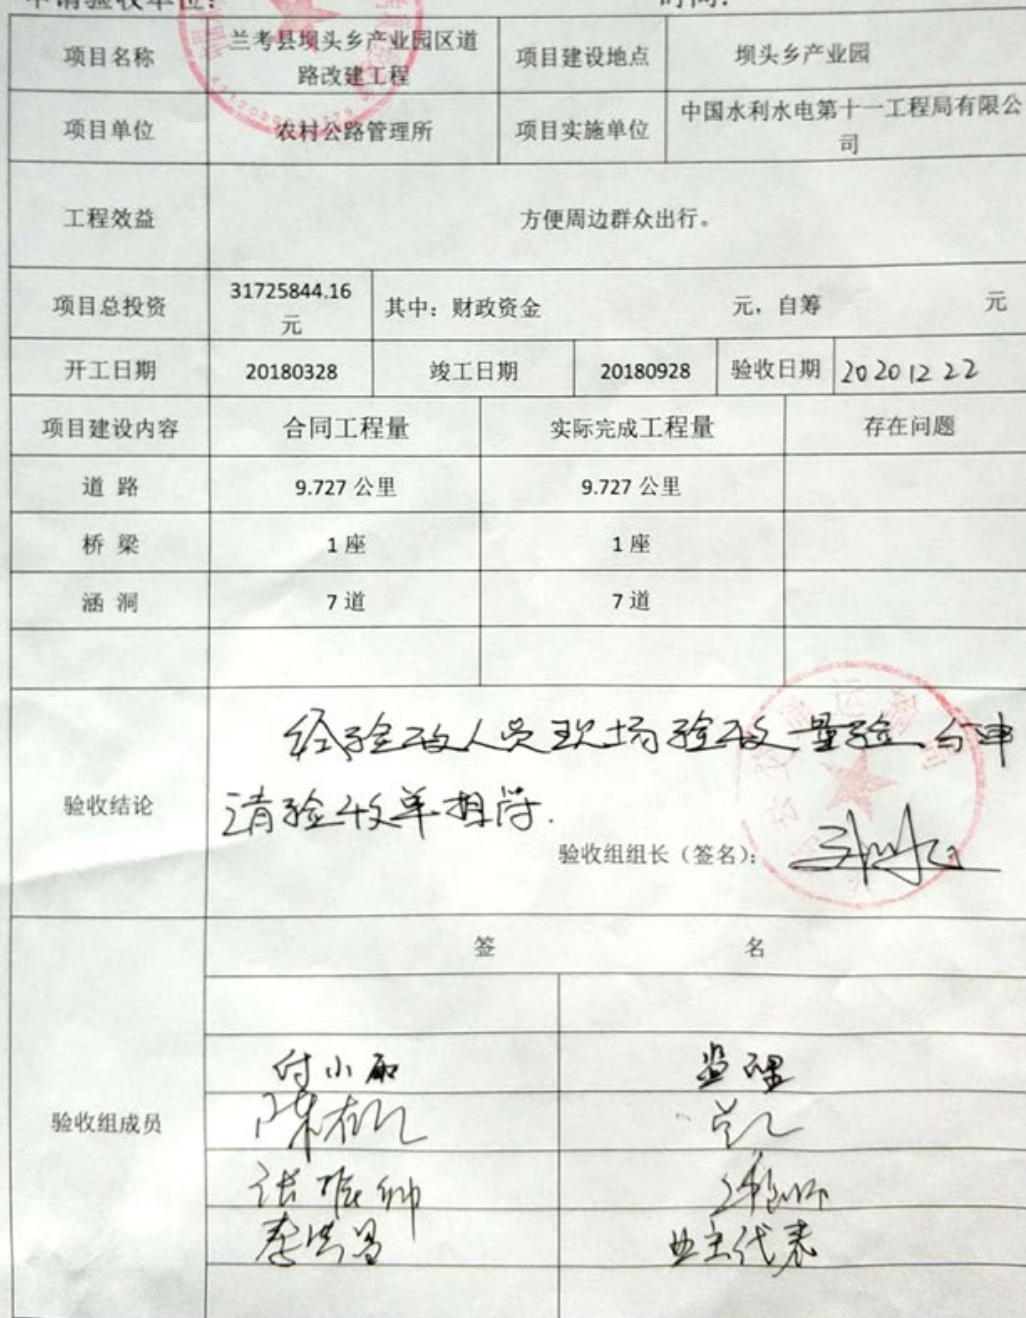 申请验收单位： 时间：
项目名称 兰考县坝头乡产业园区道路改建工程 项目建设地点 坝头乡产业园
项目单位 农村公路管理所 项目实施单位 中国水利水电第十一工程局有限公司
工程效益 方便周边群众出行。
项目总投资 31725844.16元 其中：财政资金 元，自筹 元
开工日期 20180328 竣工日期 20180928 验收日期 20201222
项目建设内容 合同工程量 实际完成工程量 存在问题
道 路 9.727 公里 9.727 公里
桥 梁 1 座 1 座
涵 洞 7 道 7 道
经验收人员现场验收量验，与申
验收结论 请验收单相符.
验收组组长（签名）：
签 名
付小丽 监理
验收组成员
张振帅
李洪昌 业主代表